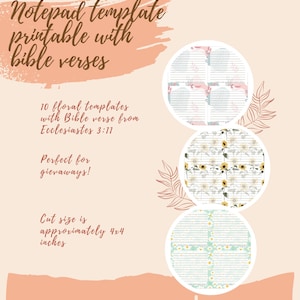 Notepad template
printable with
bible verses
10 floral templates
with Bible verse from
Ecclesiastes 3:11
Perfect for
giveaways!
Cut size is
approximately 4x4
inches